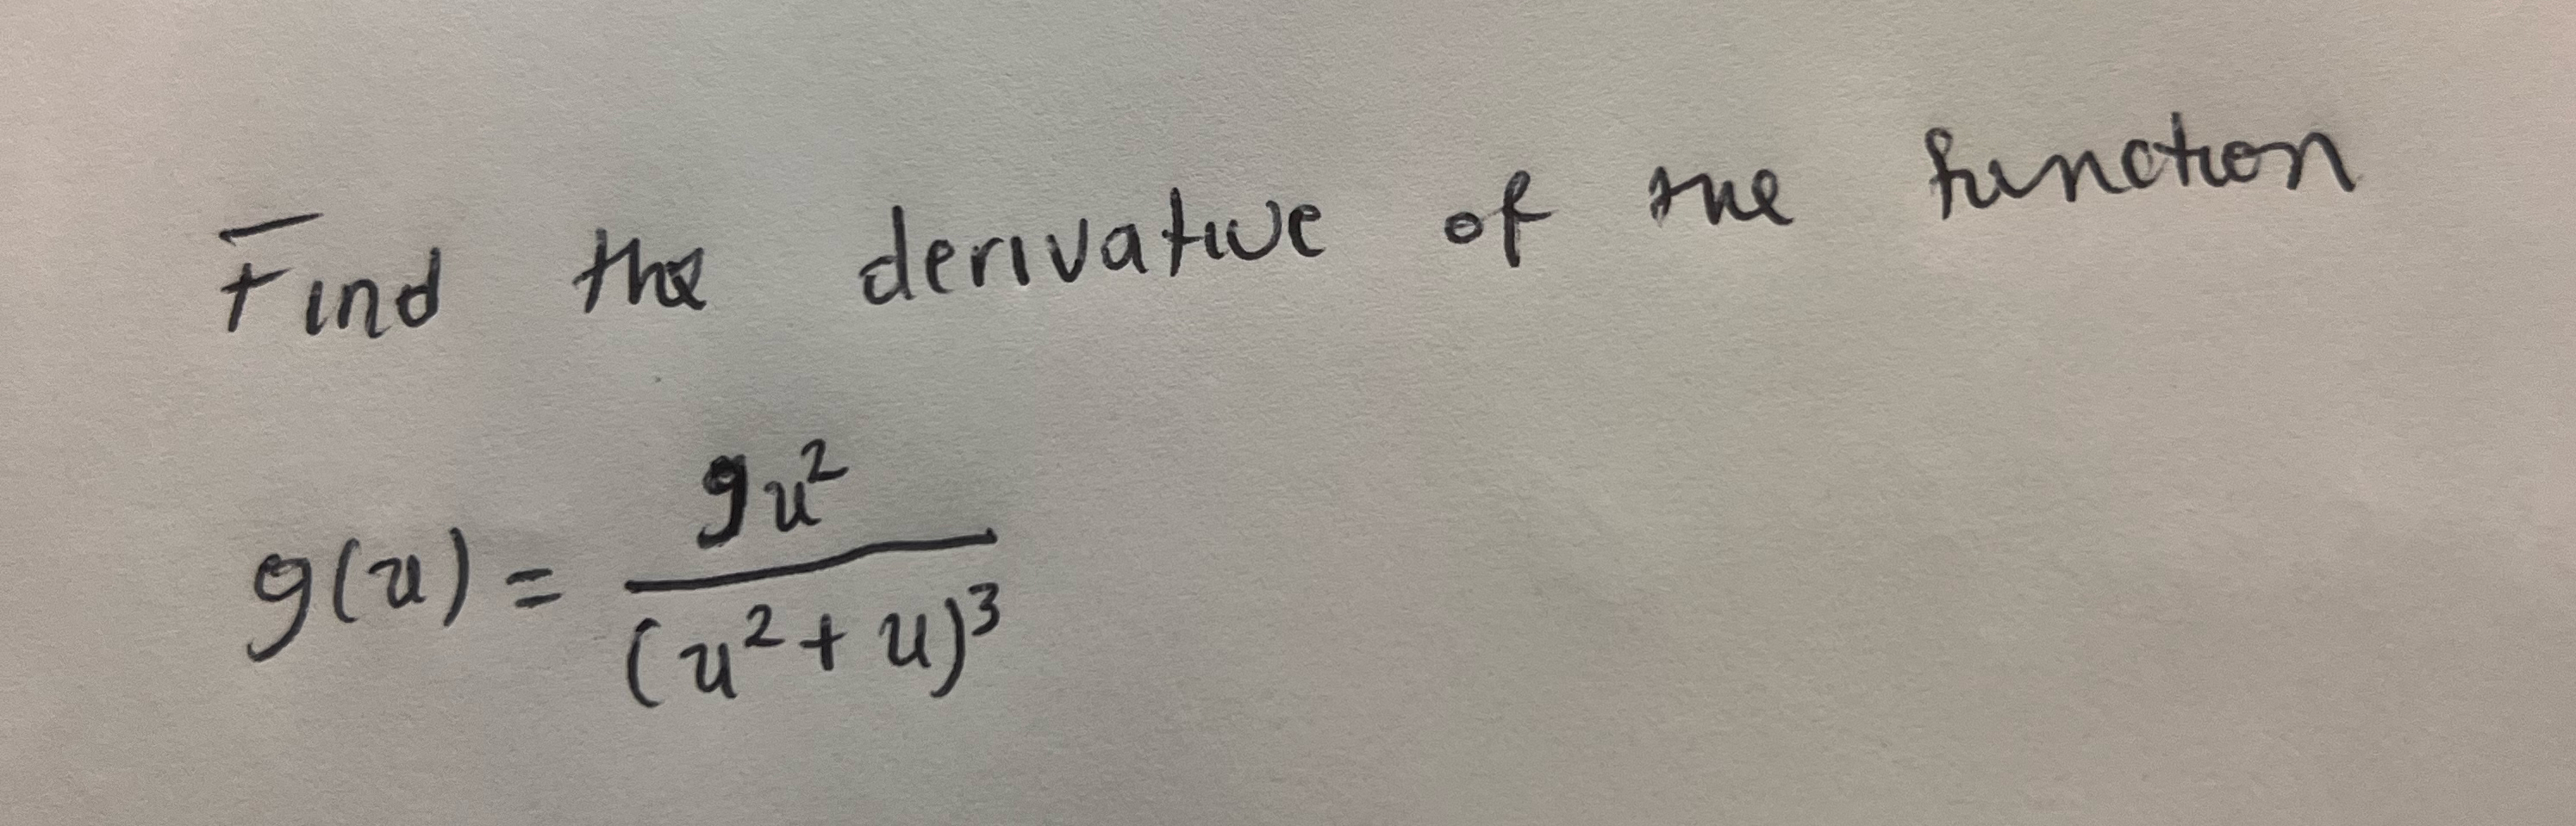 Find the derivative of the function
g(u) = 9u²/(u² + u)³